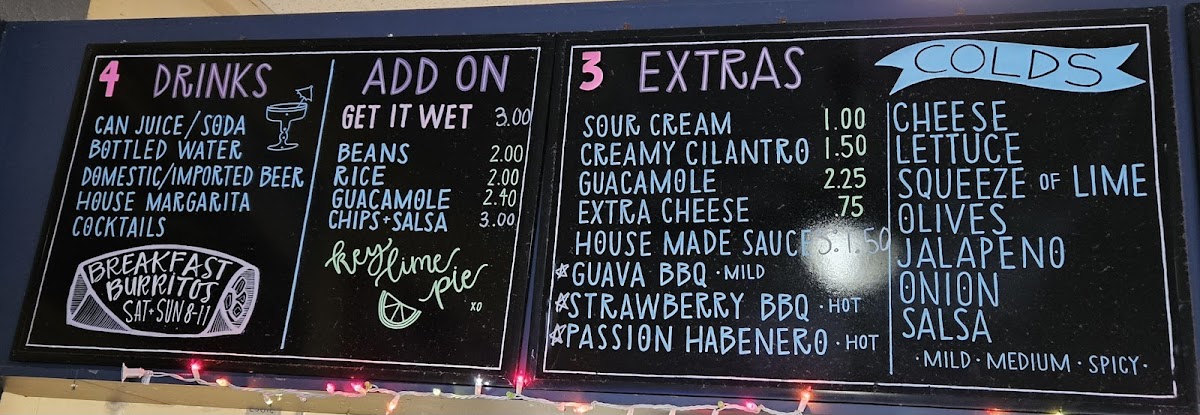 4 DRINKS
CAN JUICE/SODA
BOTTLED WATER
DOMESTIC/IMPORTED BEER
HOUSE MARGARITA
COCKTAILS
BREAKFAST
BURRITOS
SAT+SUN 8-11
ADD ON
GET IT WET 3.00
BEANS 2.00
RICE 2.00
GUACAMOLE 2.40
CHIPS+SALSA 3.00
key lime
pie
xo
3 EXTRAS
SOUR CREAM 1.00
CREAMY CILANTRO 1.50
GUACAMOLE 2.25
EXTRA CHEESE .75
HOUSE MADE SAUCES. 1.50
GUAVA BBQ · MILD
STRAWBERRY BBQ · HOT
PASSION HABENERO · HOT
COLDS
CHEESE
LETTUCE
SQUEEZE OF LIME
OLIVES
JALAPENO
ONION
SALSA
· MILD · MEDIUM · SPICY ·